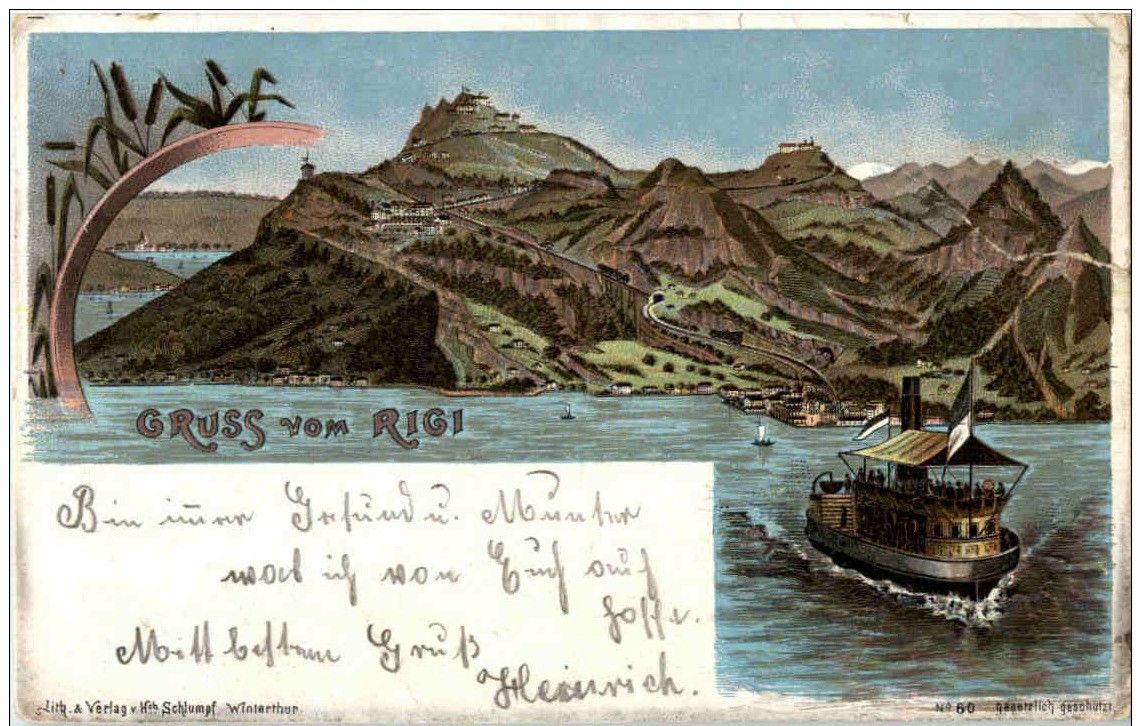 GRUSS VOM RIGI
Bin im̅er Gesund u. Munter
was ich von Euch auch
hoffe.
Mitt besten Gruß
Heinrich.
Lith. & Verlag v. Hch. Schlumpf Winterthur.
No 60 gesetzlich geschützt.